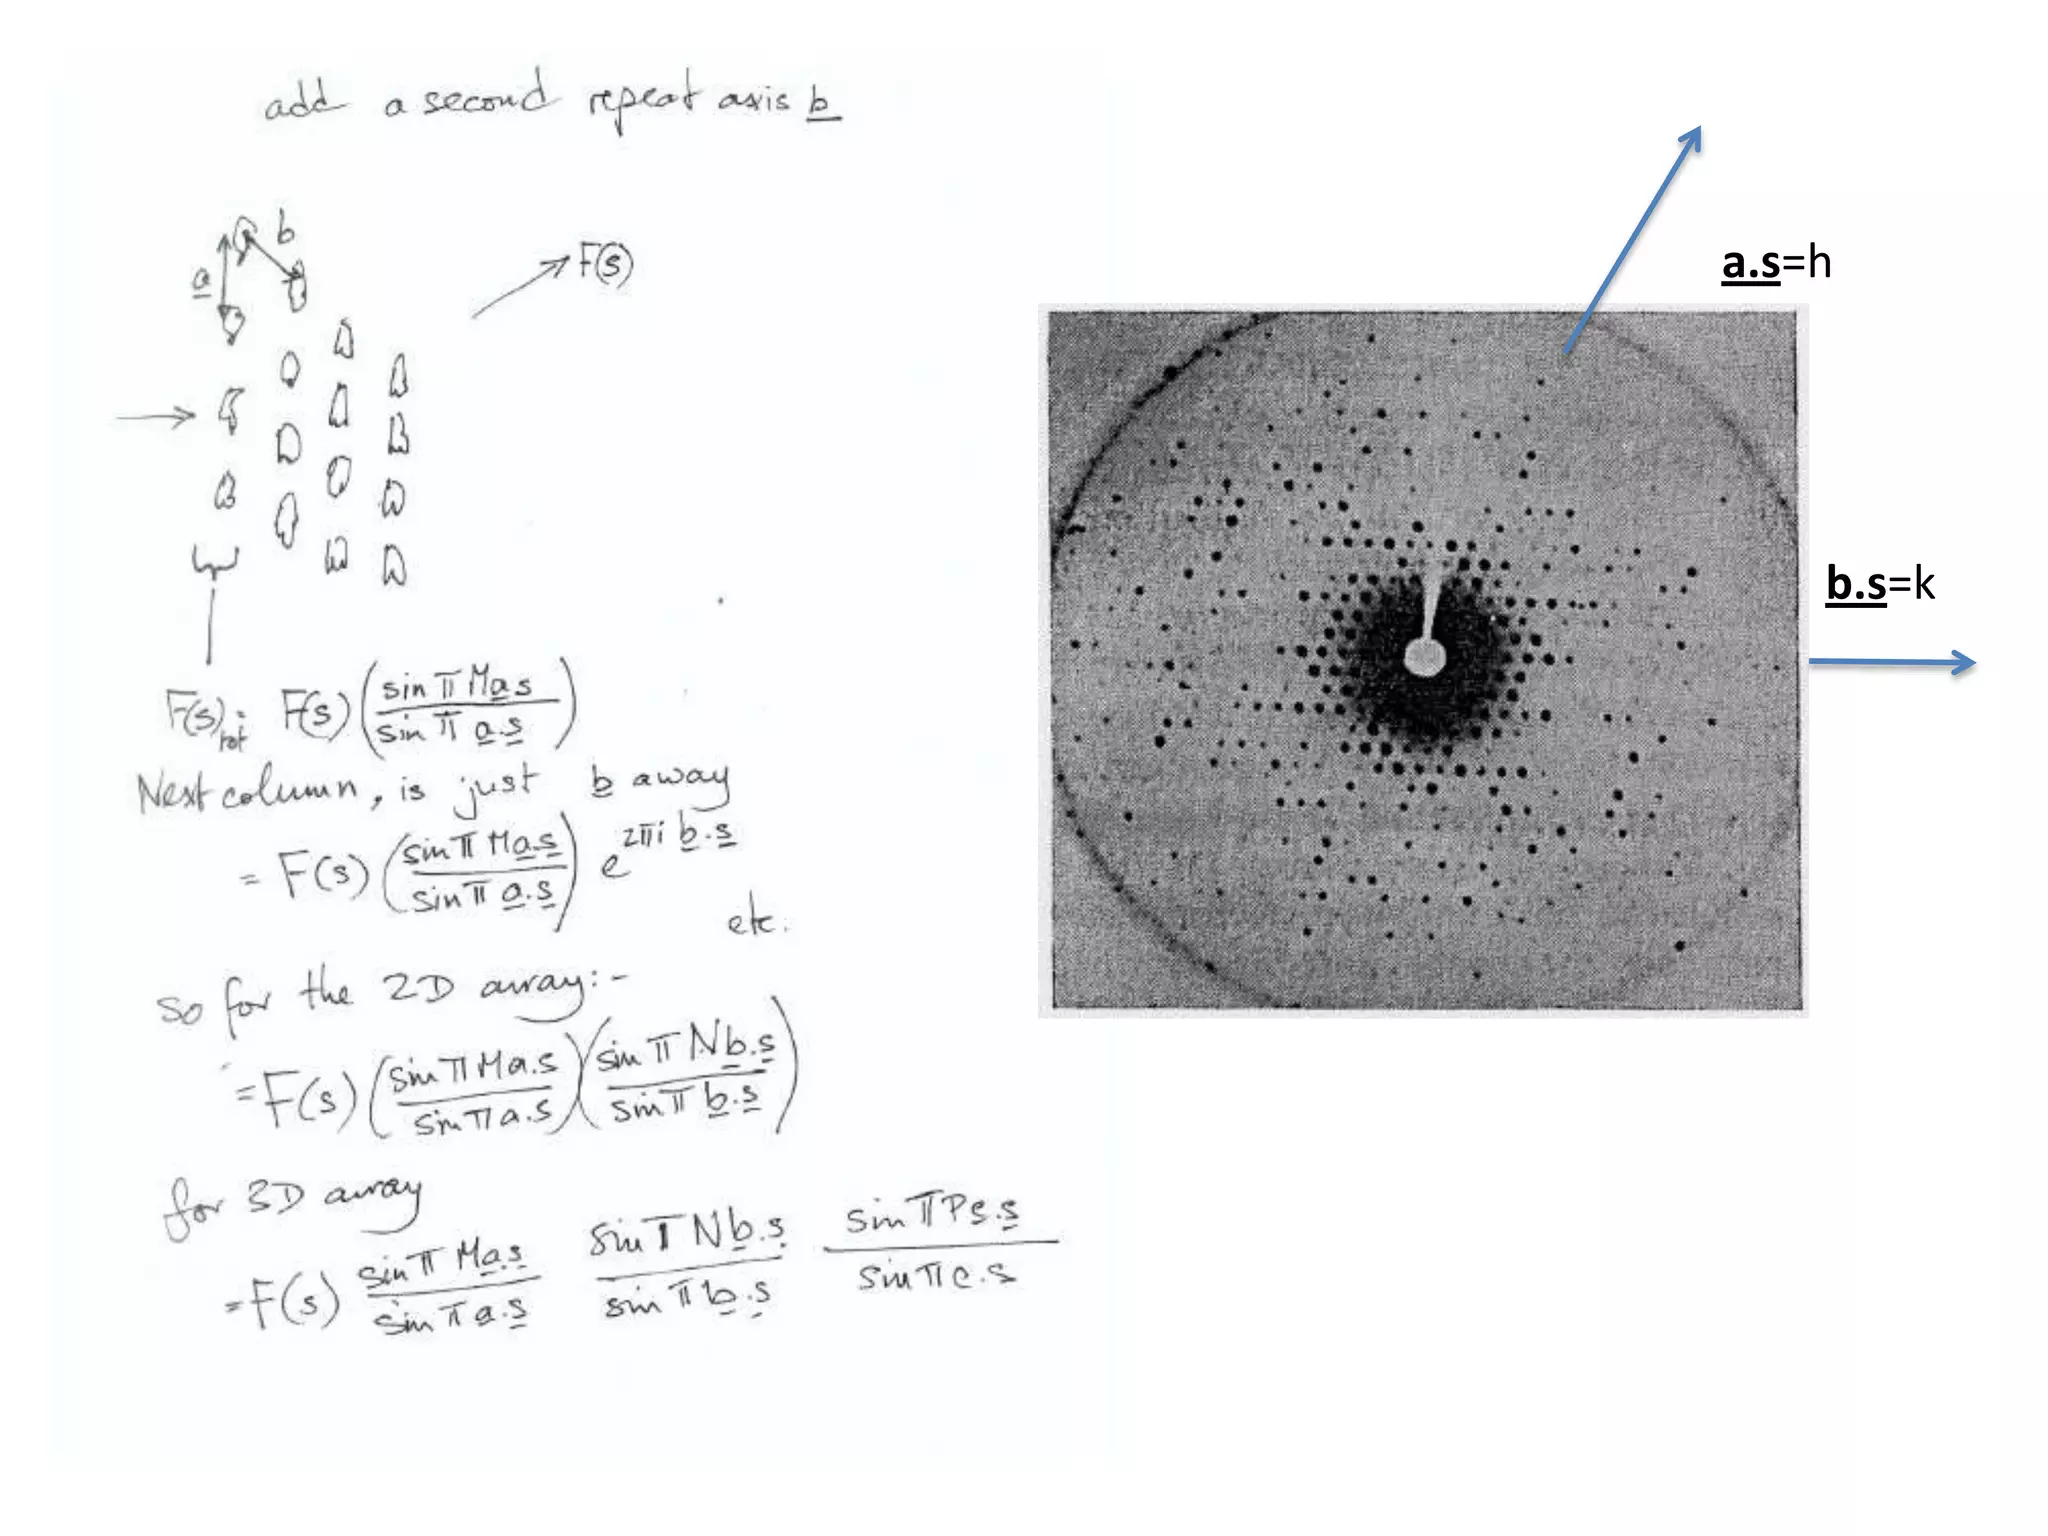 add a second repeat axis b
b
a
F(s)
F(s)tot = F(s) (sin π Ma.s / sin π a.s)
Next column, is just b away
= F(s) (sin π Ma.s / sin π a.s) e^2πi b.s
etc.
so for the 2D array:-
= F(s) (sin π Ma.s / sin π a.s) (sin π Nb.s / sin π b.s)
for 3D array
= F(s) sin π Ma.s / sin π a.s sin π Nb.s / sin π b.s sin π Pc.s / sin π c.s
a.s=h
b.s=k